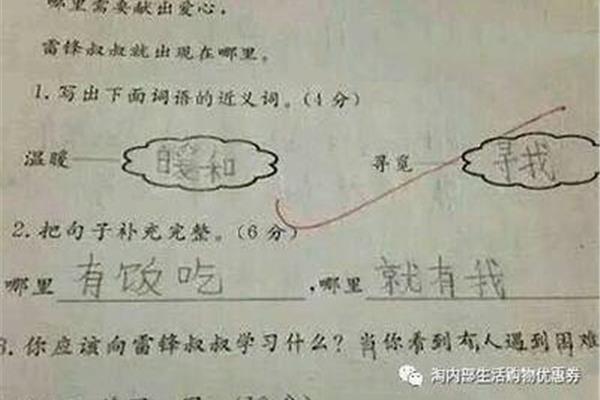 哪里需要献出爱心,
雷锋叔叔就出现在哪里。
1.写出下面词语的近义词。(4分)
温暖——暖和 寻觅——寻找
2.把句子补充完整。(6分)
哪里有饭吃,哪里就有我
3.你应该向雷锋叔叔学习什么?当你看到有人遇到困难
淘内部生活购物优惠券